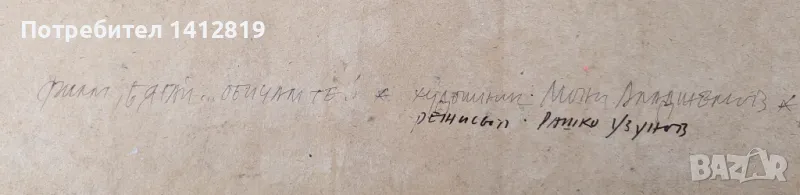 Потребител 1412819
филм „Бягай.. обичам те!“ * художник: Мони Аладжемов *
режисьор: Рашко Узунов
bazar